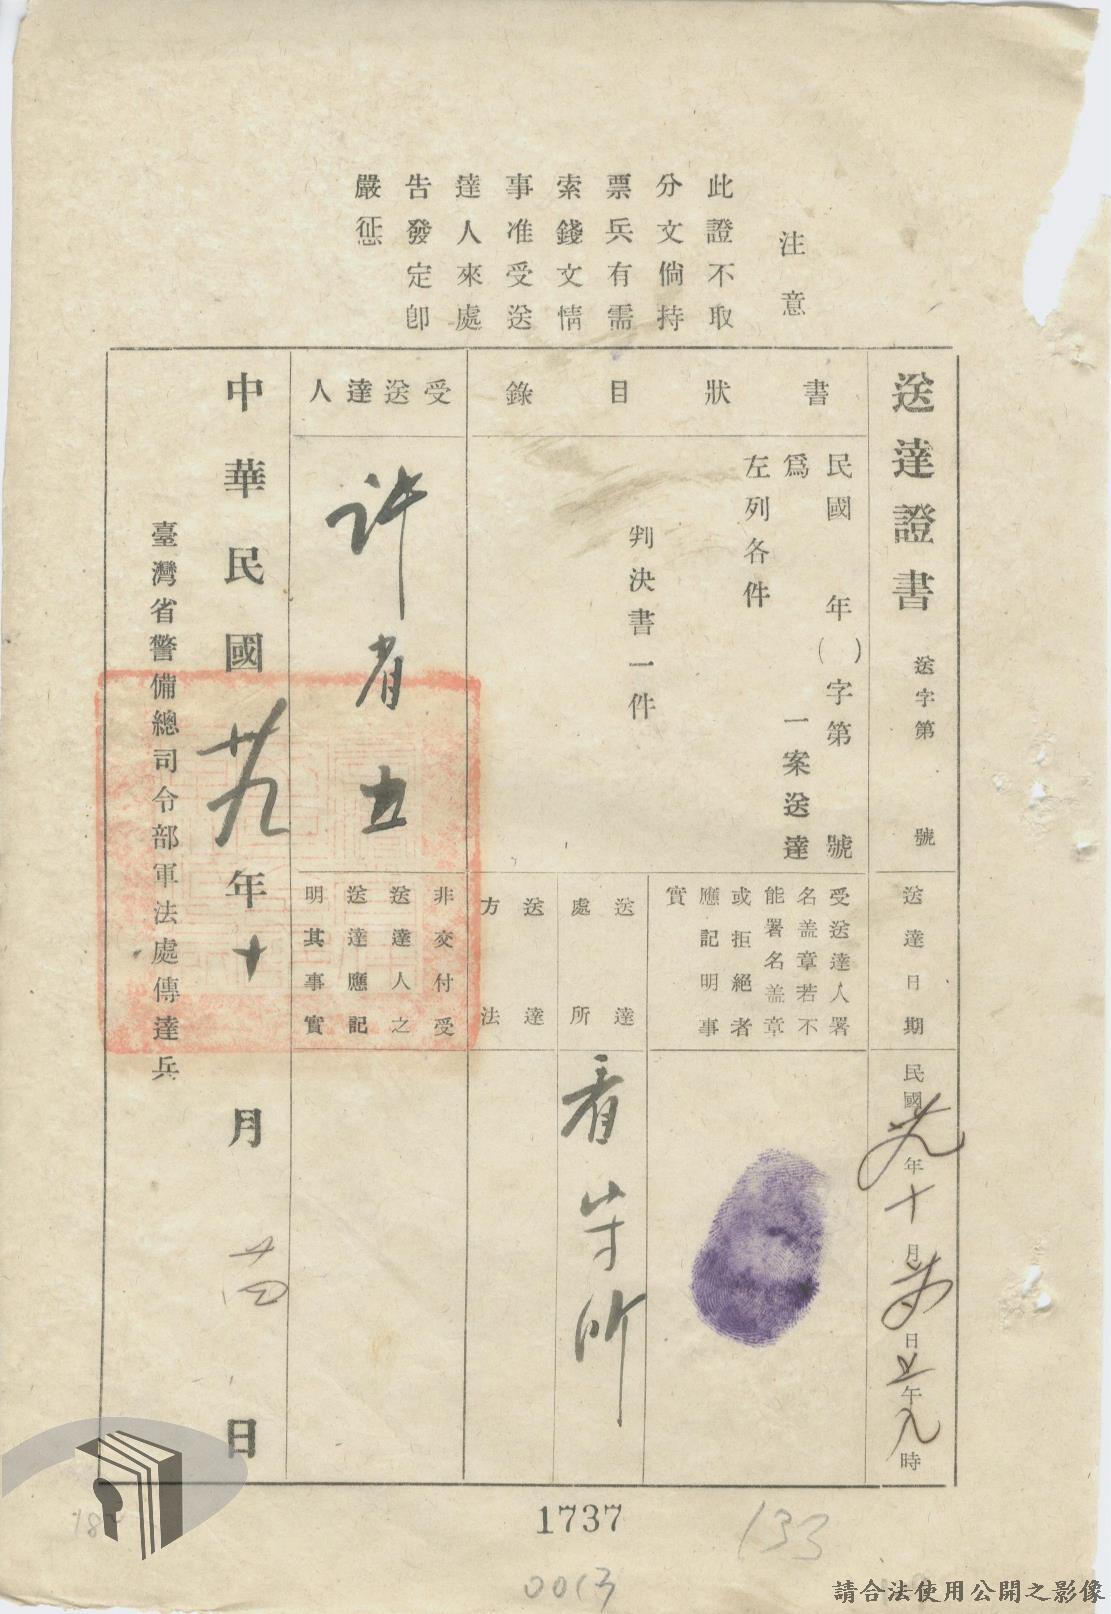 注意
此證不取
分文倘持
票兵有需
索錢文情
事准受送
達人來處
告發定卽
嚴惩
送達證書 送字第 號
送達日期
民國廿九年十月 日上午八時
書狀目錄
民國 年( )字第 號
爲 一案送達
左列各件
判決書一件
受送達人署
名盖章若不
能署名盖章
或拒絕者
應記明事
實
送達
處所
看守所
送達
方法
受送達人
許省五
非交付受
送達人之
送達應記
明其事實
中華民國廿九年十月廿四日
臺灣省警備總司令部軍法處傳達兵
1737
133
0013
請合法使用公開之影像